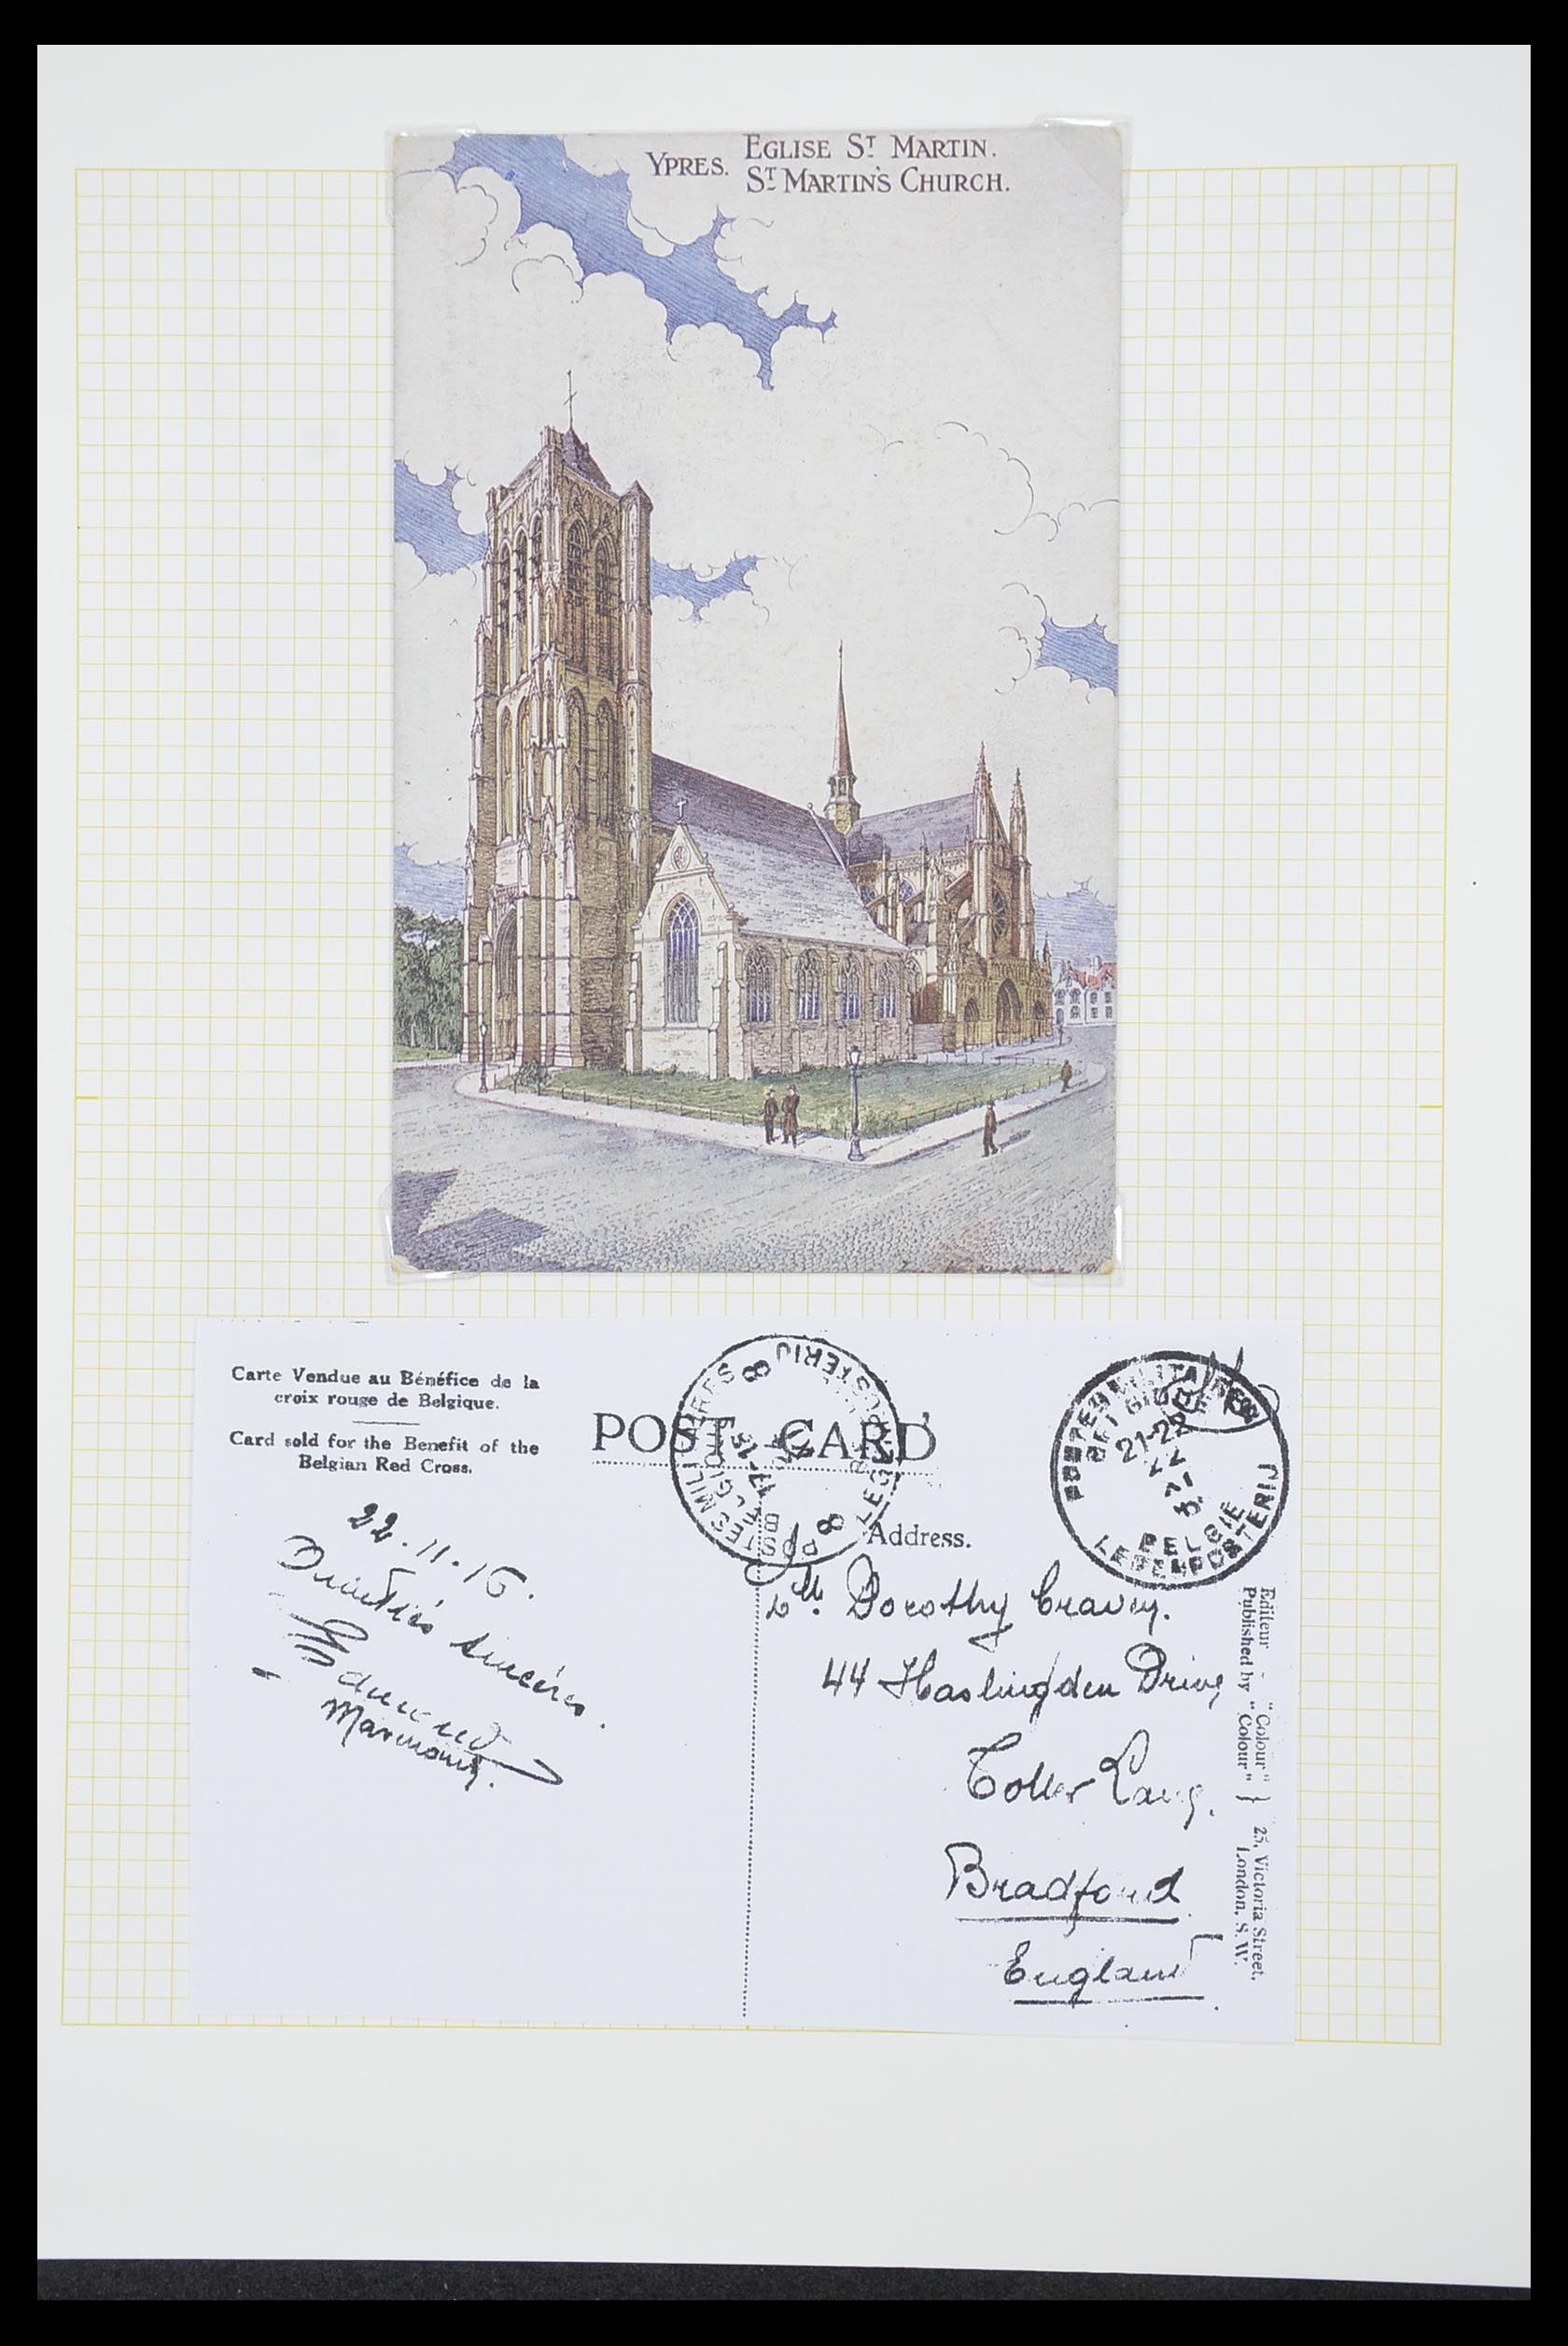 YPRES. EGLISE ST MARTIN.
ST MARTIN'S CHURCH.
Carte Vendue au Bénéfice de la
croix rouge de Belgique.
Card sold for the Benefit of the
Belgian Red Cross.
POST CARD
Address.
POSTES MILITAIRES
BELGIQUE
8
8
POSTES MILITAIRES
BELGIQUE
21-22
22
XI
BELGIE
LEGERPOSTERIJ
22.11.15.
sincères.
Edmond
Dorothy
44 Haslingden Drive
Toller Lane.
Bradford
England
Editeur - "Colour" }
Published by "Colour"
25, Victoria Street,
London, S.W.